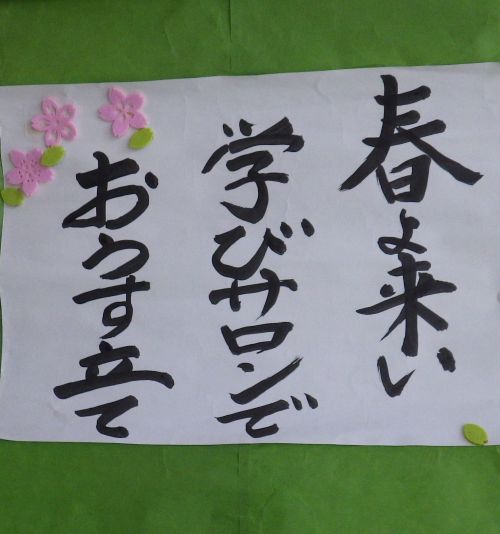 春よ来い
学びサロンで
おうす立て